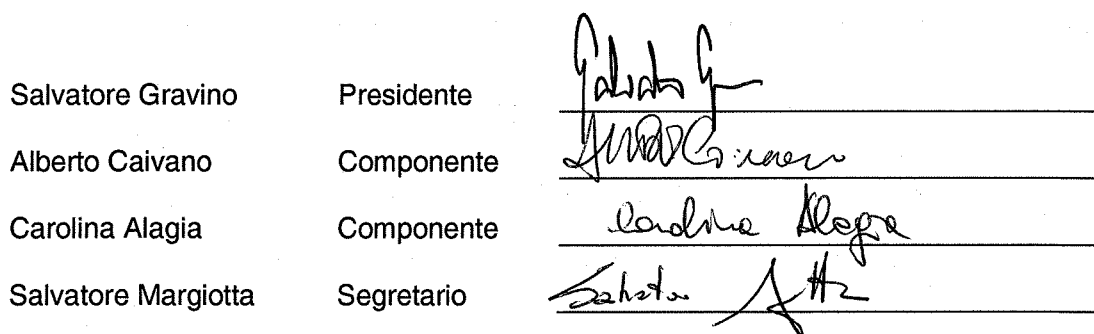 Salvatore Gravino Presidente
Alberto Caivano Componente
Carolina Alagia Componente Carolina Alagia
Salvatore Margiotta Segretario